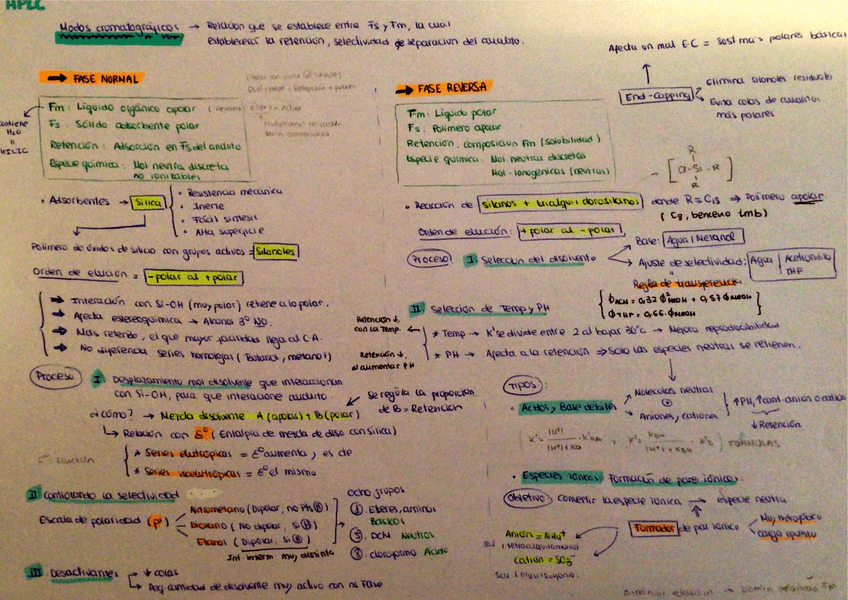 HPLC
Modos cromatográficos → Relación que se establece entre Fs y Fm, la cual
establecerá la retención, selectividad de separación del analito.
→ FASE NORMAL
Fm: Líquido orgánico apolar
Fs: Sólido adsorbente polar
Retención: Adsorción en Fs del analito
Especie química: Mol neutra discreta
no ionizables
contiene
H₂O
HILIC
• Adsorbentes → Silica
• Resistencia mecánica
• Inerte
• Fácil síntesis
• Alta superficie
Polímero de óxidos de silicio con grupos activos = Silanoles
Orden de elución = - polar al + polar
→ Interacción con Si-OH (muy polar) retiene a lo polar.
→ Afecta estereoquímica → Alcohol 3º NO.
→ Más retenido, el que mayor facilidad llega al C.A.
→ No diferencia series homólogas (Butanol, metanol)
Proceso
I Desplazamiento mol disolvente que interaccionan
con Si-OH, para que interacione analito.
¿Cómo? → Mezcla disolvente A (apolar) + B (polar)
Se regula la proporción
de B = Retención
↳ Relación con ε° (Entalpía de mezcla de diso con silica)
* Series elutrópicas = ε° aumenta, es de
* Series isoelutrópicas = ε° el mismo
II Controlando la selectividad
Escala de polaridad (P')
Nitrometano (Dipolar, no Ph B)
Dioxano (No dipolar, si B)
Etanol (Dipolar, si B)
Int. interm. muy distinta
Ocho grupos
① Eteres, aminas
Básicos
⑤ DCM Neutros
⑧ cloroformo Ácido
III Desactivantes
↓ colas
Peq. cantidad de disolvente muy activo con ni Fase
→ FASE REVERSA
Fm: Líquido polar
Fs: Polímero apolar
Retención, composición Fm (solubilidad)
Especie química: Mol neutras discretas
Mol. ionogénicas (neutras)
Afecta un mal E·C = sost más polares básicas
End-capping
Elimina silanoles residuales
Evita colas de analitos
más polares
R
Cl-Si-R
R
• Reacción de silanos + trialquil clorosilanos donde R = C₁₈ → Polímero apolar
(C₈, benceno tmb)
Orden de elución: + polar al - polar
Proceso I Selección del disolvente
Base: Agua / Metanol
Ajuste de selectividad: Agua / Acetonitrilo
THF
Regla de transferencia
ϕACN = 0,32 ϕ²MeOH + 0,57 ϕMeOH
ϕTHF = 0,66 ϕMeOH
II Selección de Temp y PH
Retención ↓,
con la Temp.
Retención ↓,
al aumentar PH
* Temp → K' se divide entre 2 al bajar 30°C → Mejora reproducibilidad
* PH → Afecta a la retención ⇒ Solo las especies neutras se retienen.
Tipos:
• Ácidos, Base débiles
Moléculas neutras
Aniones, cationes
↑PH, ↑cant. anión o catión
↓ Retención
FÓRMULAS
• Especies iónicas: Formación de pares iónicos.
Objetivo: convertir la especie iónica → especie neutra
Formador de par iónico
Muy hidrofóbico
carga opuesta
Anión = NH₄⁺
Catión = SO₃⁻